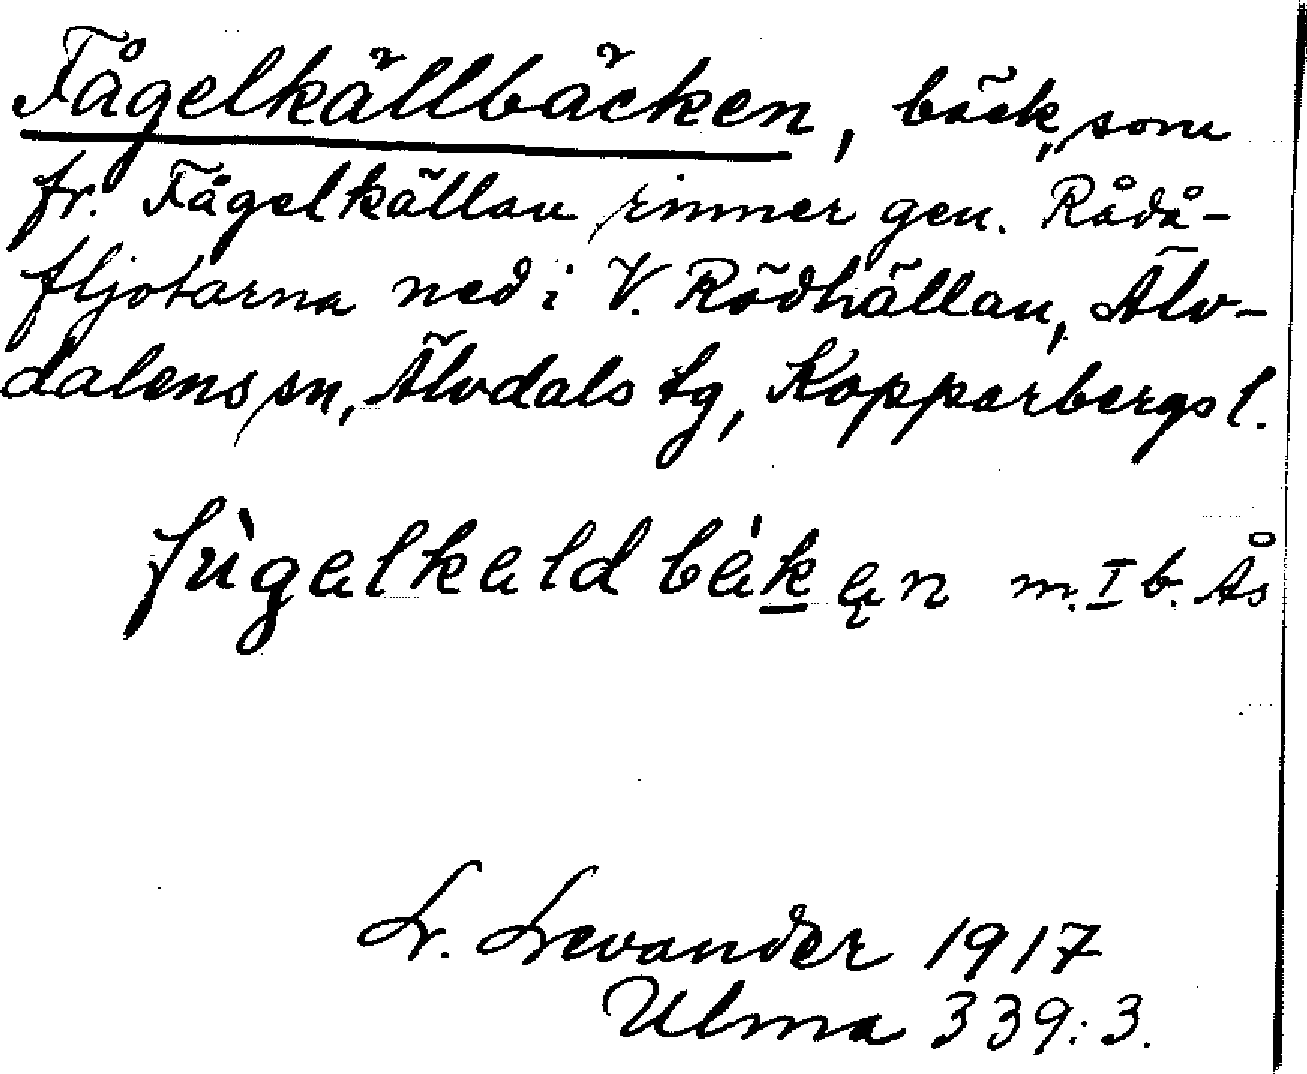 Fågelkällbäcken, bäck, som
fr. Fågelkällan rinner gen. Rådå-
fljotarna ned i V. Rödhällan, Älv-
dalens sn, Älvdals tg, Kopparbergs l.
fùgalkald bàkan m. I b. Ås
L. Levander 1917
Ulma 339:3.